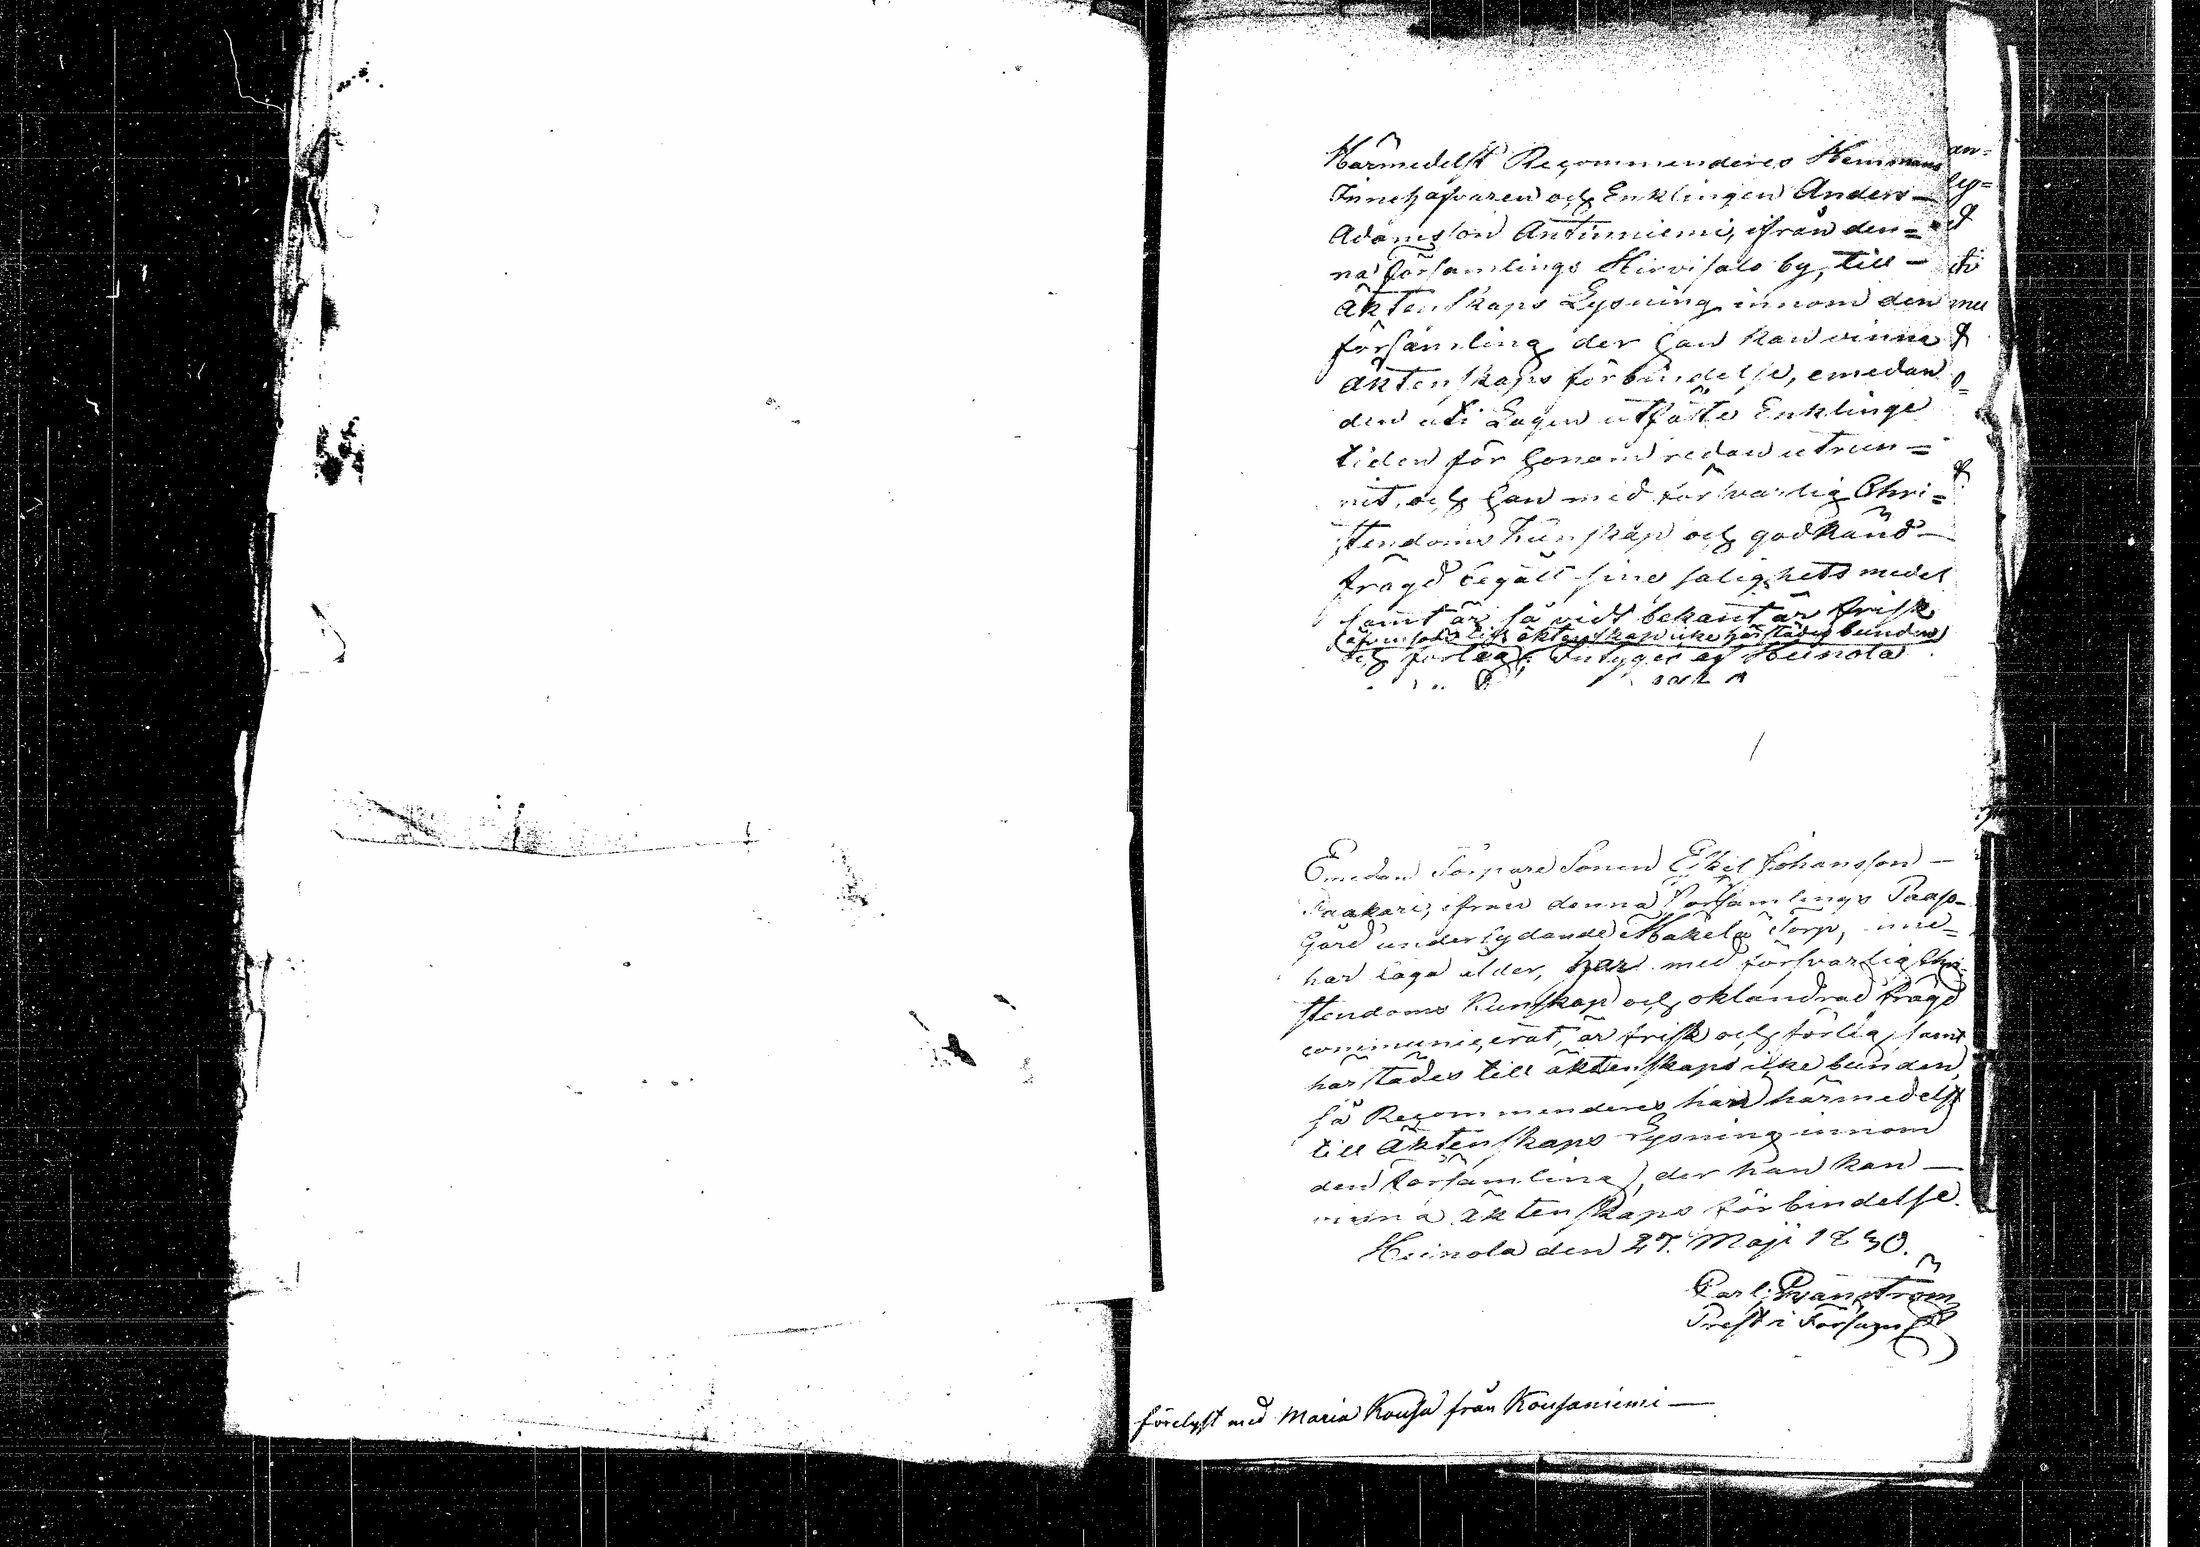 Härmedelst Recommenderes Hemmans
Innehafvaren och Enklingen Anders
Adamsson Antinniemi, ifrån den=
na församlings Hirvisalo by, till
äktenskaps Lysning innom den
församling der han kan vinna
äktenskaps förbindelse, emedan
den uti Lagen utsatte Enklinge
tiden för honom redan utrun=
nit, och han med försvarlig Chri=
stendoms kunskap och godkänd
frägd begått sine salighets medel
samt är så vidt bekant är frisk
äfvensom till äktenskap icke härstädes bunden
och förleg; Intyger af Heinola
Emedan Torpare Sonen Eskel Johansson
ifrån denna Församlings Paaso
Gård underlydande Mäkelä Torp, inne=
har laga ålder, har med försvarlig Chri=
stendoms Kunskap och oklandrad frägd
communicerat, är frisk och förleg samt
härstädes till äktenskaps icke bunden,
så Recommenderes han härmedelst
till Äktenskaps Lysning innom
den Församling, der han kan
vinna äktenskaps förbindelse.
Heinola den 27. Maji 1830.
Carl
Prest i Församl
förelyst med Maria Kousa från Kousaniemi